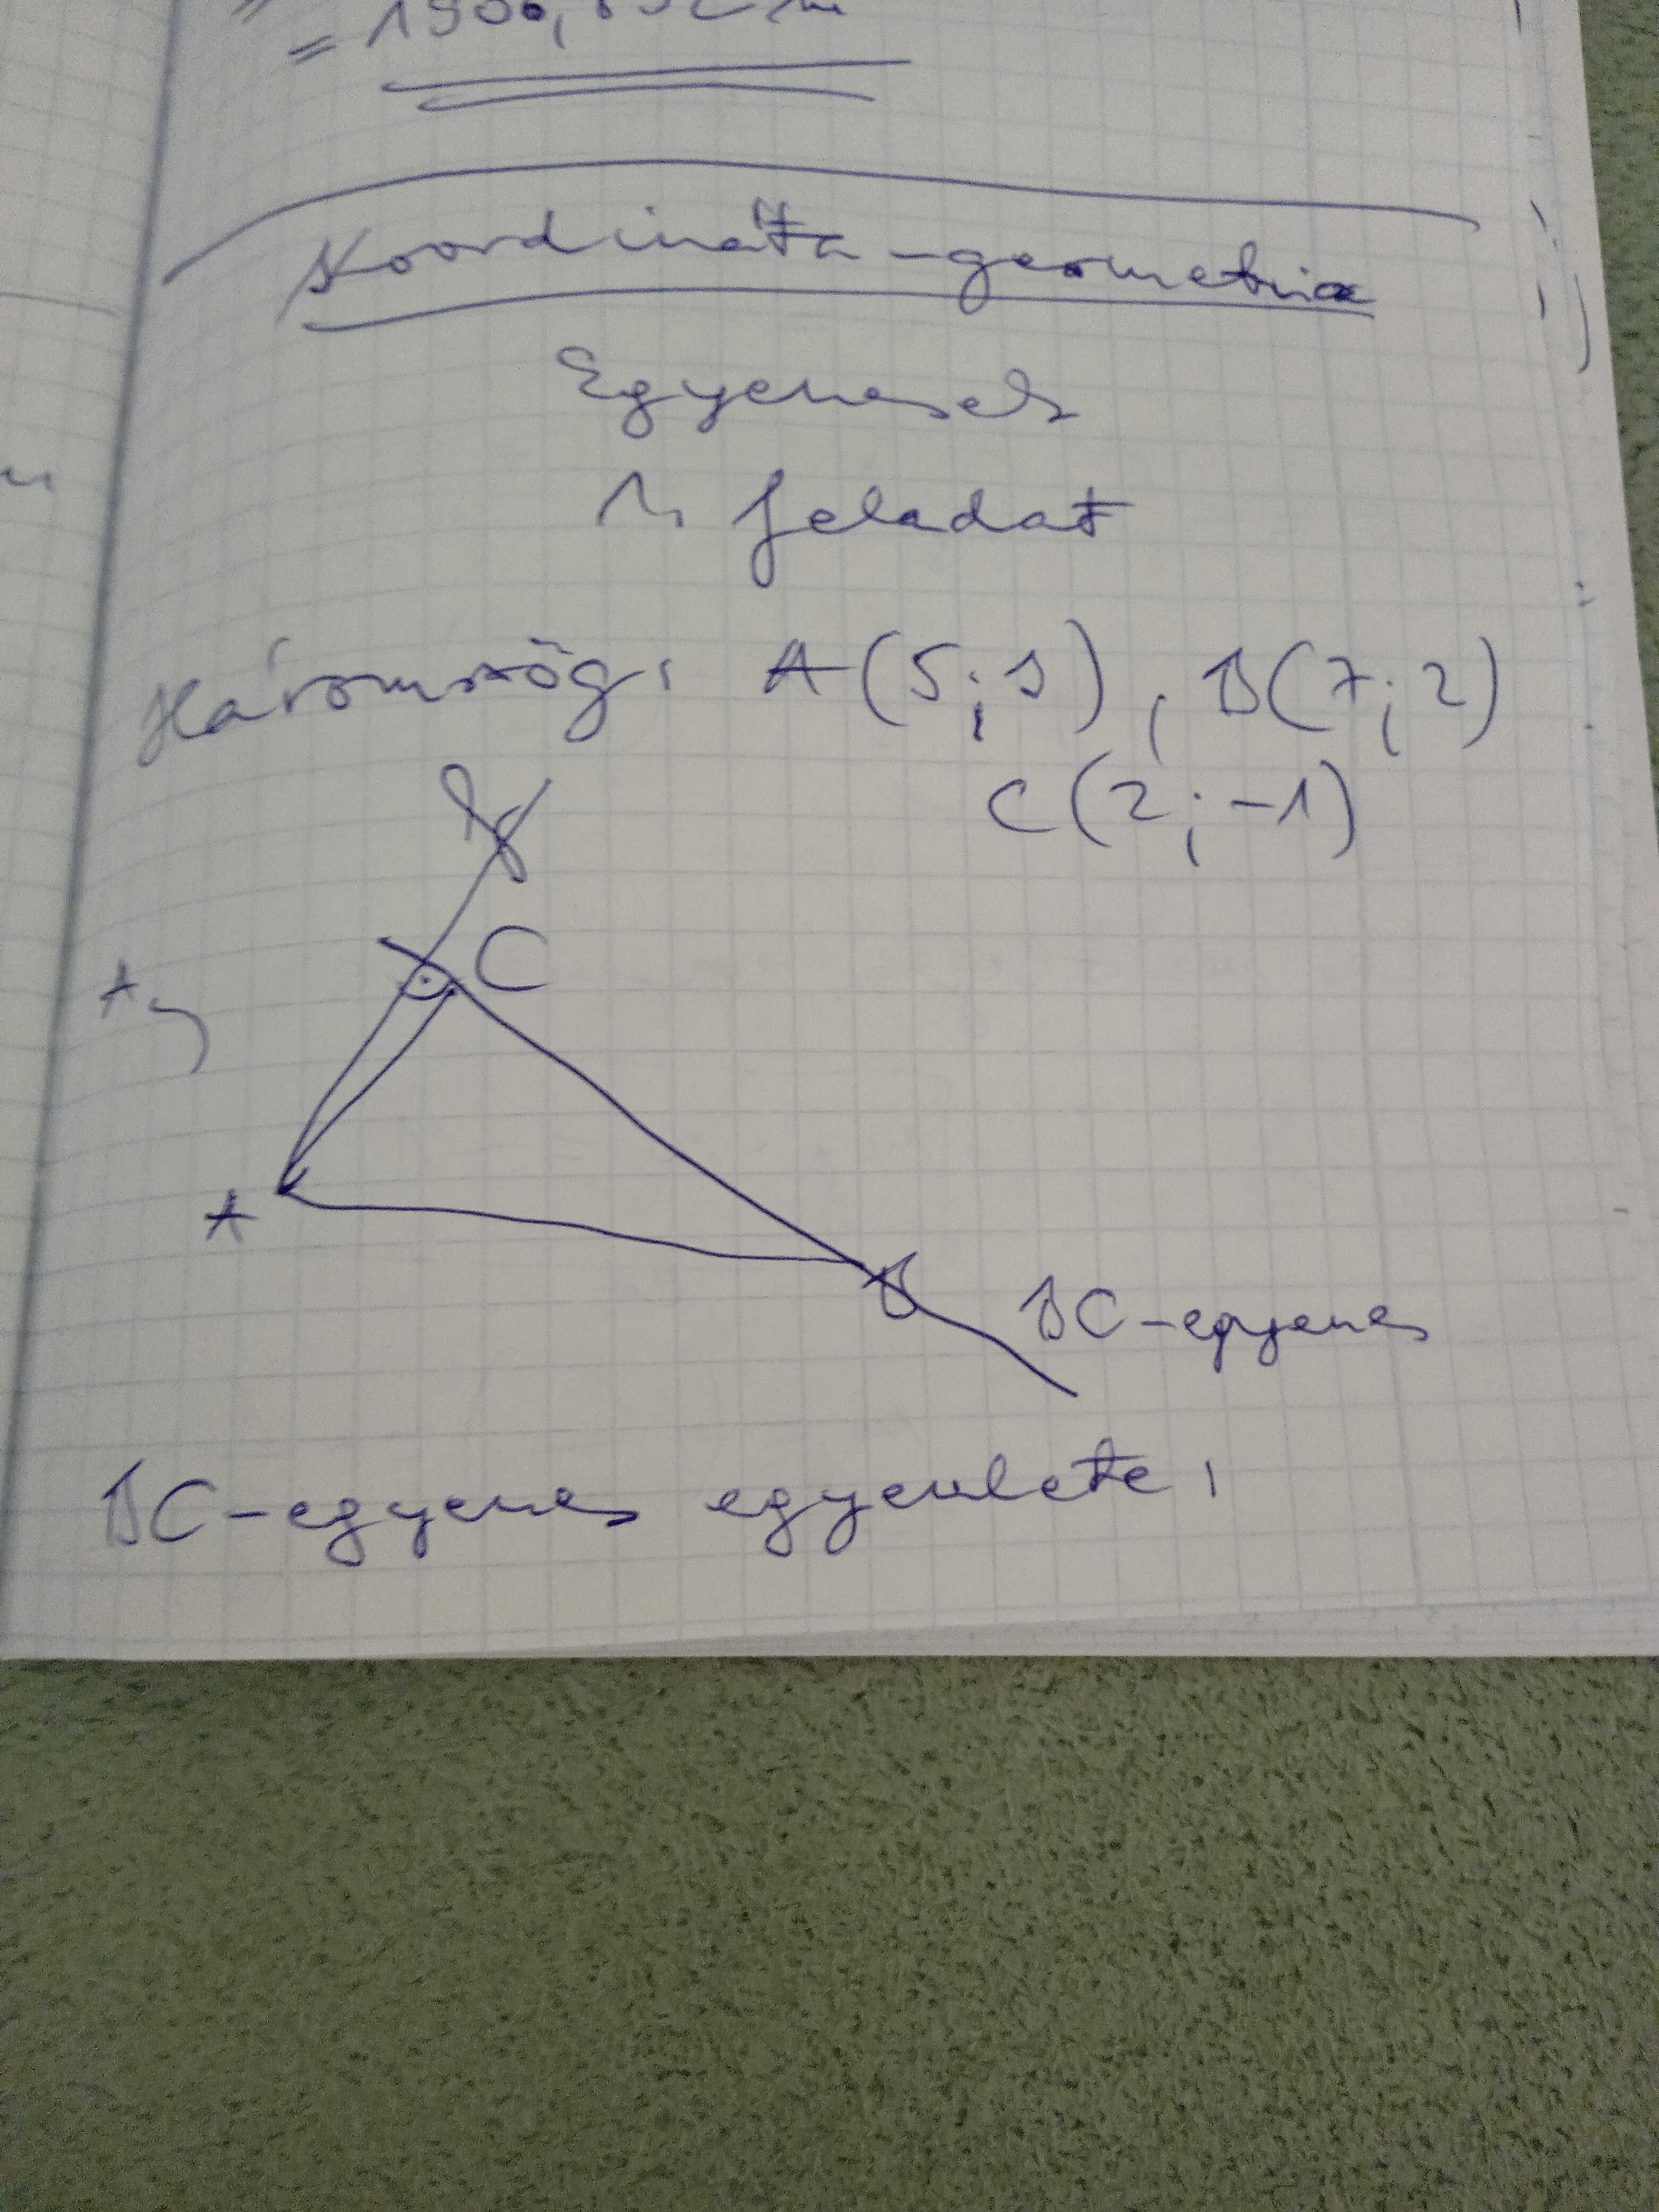 Koordináta-geometria
Egyenesek
1. feladat
Háromszög: A(5;9), B(7;2)
C(2;-1)
C
A
B
BC-egyenes
BC-egyenes egyenlete: